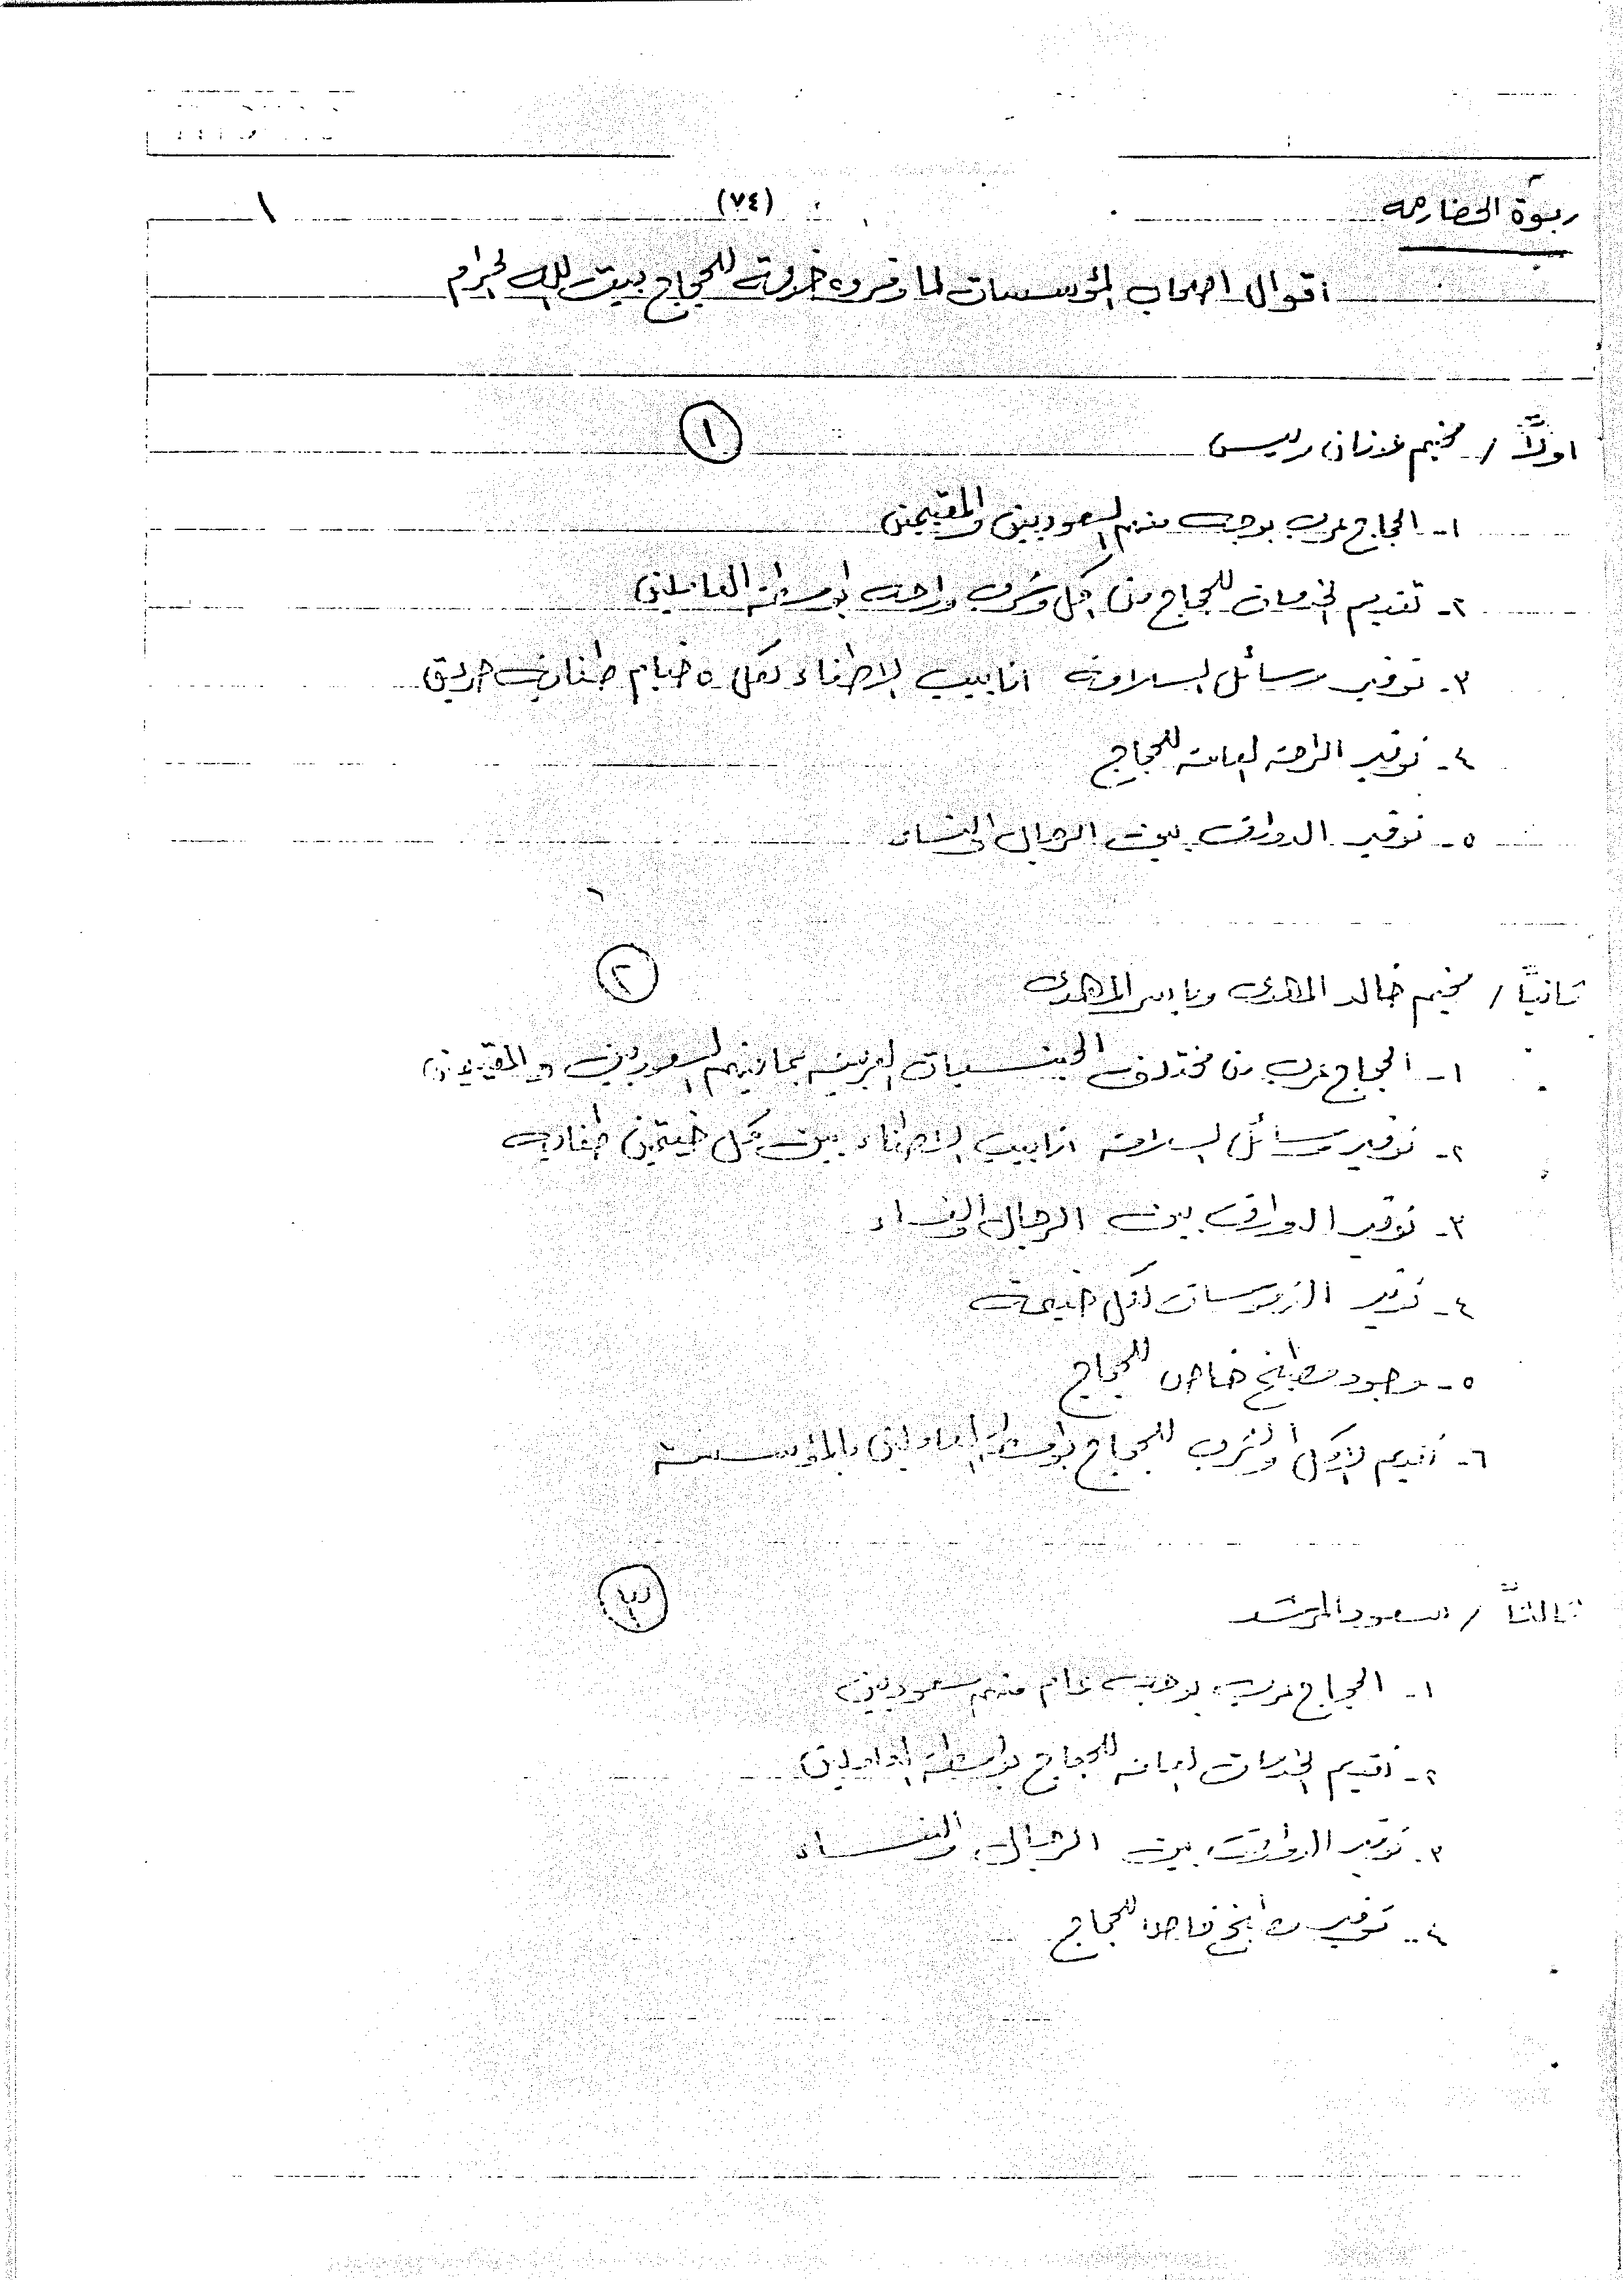 ربوة الحضارمه
(٧٤)
١
أقوال اصحاب المؤسسات لما وفروه خدمة للحجاج بيت الله الحرام
اولاً / مخيم عدنان ريس
١
١- الحجاج عرب بوجه منهم السعوديين والمقيمين
٢- تقديم الخدمات للحجاج من اكل وشرب وراحه بواسطة العاملين
٣- توفير وسائل السلامة انابيب الاطفاء لكل ٥ خيام طفاية حريق
٤- توفير الراحة العامة للحجاج
٥- توفير الرواق بين الرجال والنساء
ثانياً / مخيم خالد المهدى وياسر المهدى
٢
١- الحجاج عرب من مختلف الجنسيات العربية بما فيهم السعوديين والمقيمين
٢- توفير وسائل السلامة انابيب الاطفاء بين كل خيمتين طفايه
٣- توفير الرواق بين الرجال والنساء
٤- توفير لكل خيمة
٥- وجود مطبخ خاص للحجاج
٦- تقديم الاكل والشرب للحجاج بواسطة العاملين بالمؤسسة
ثالثاً / سعود المرشد
٣
١- الحجاج عرب بوجه عام منهم سعوديين
٢- تقديم الخدمات العامة للحجاج بواسطة العاملين
٣- توفير الرواق بين الرجال والنساء
٤- توفير مطبخ خاص للحجاج